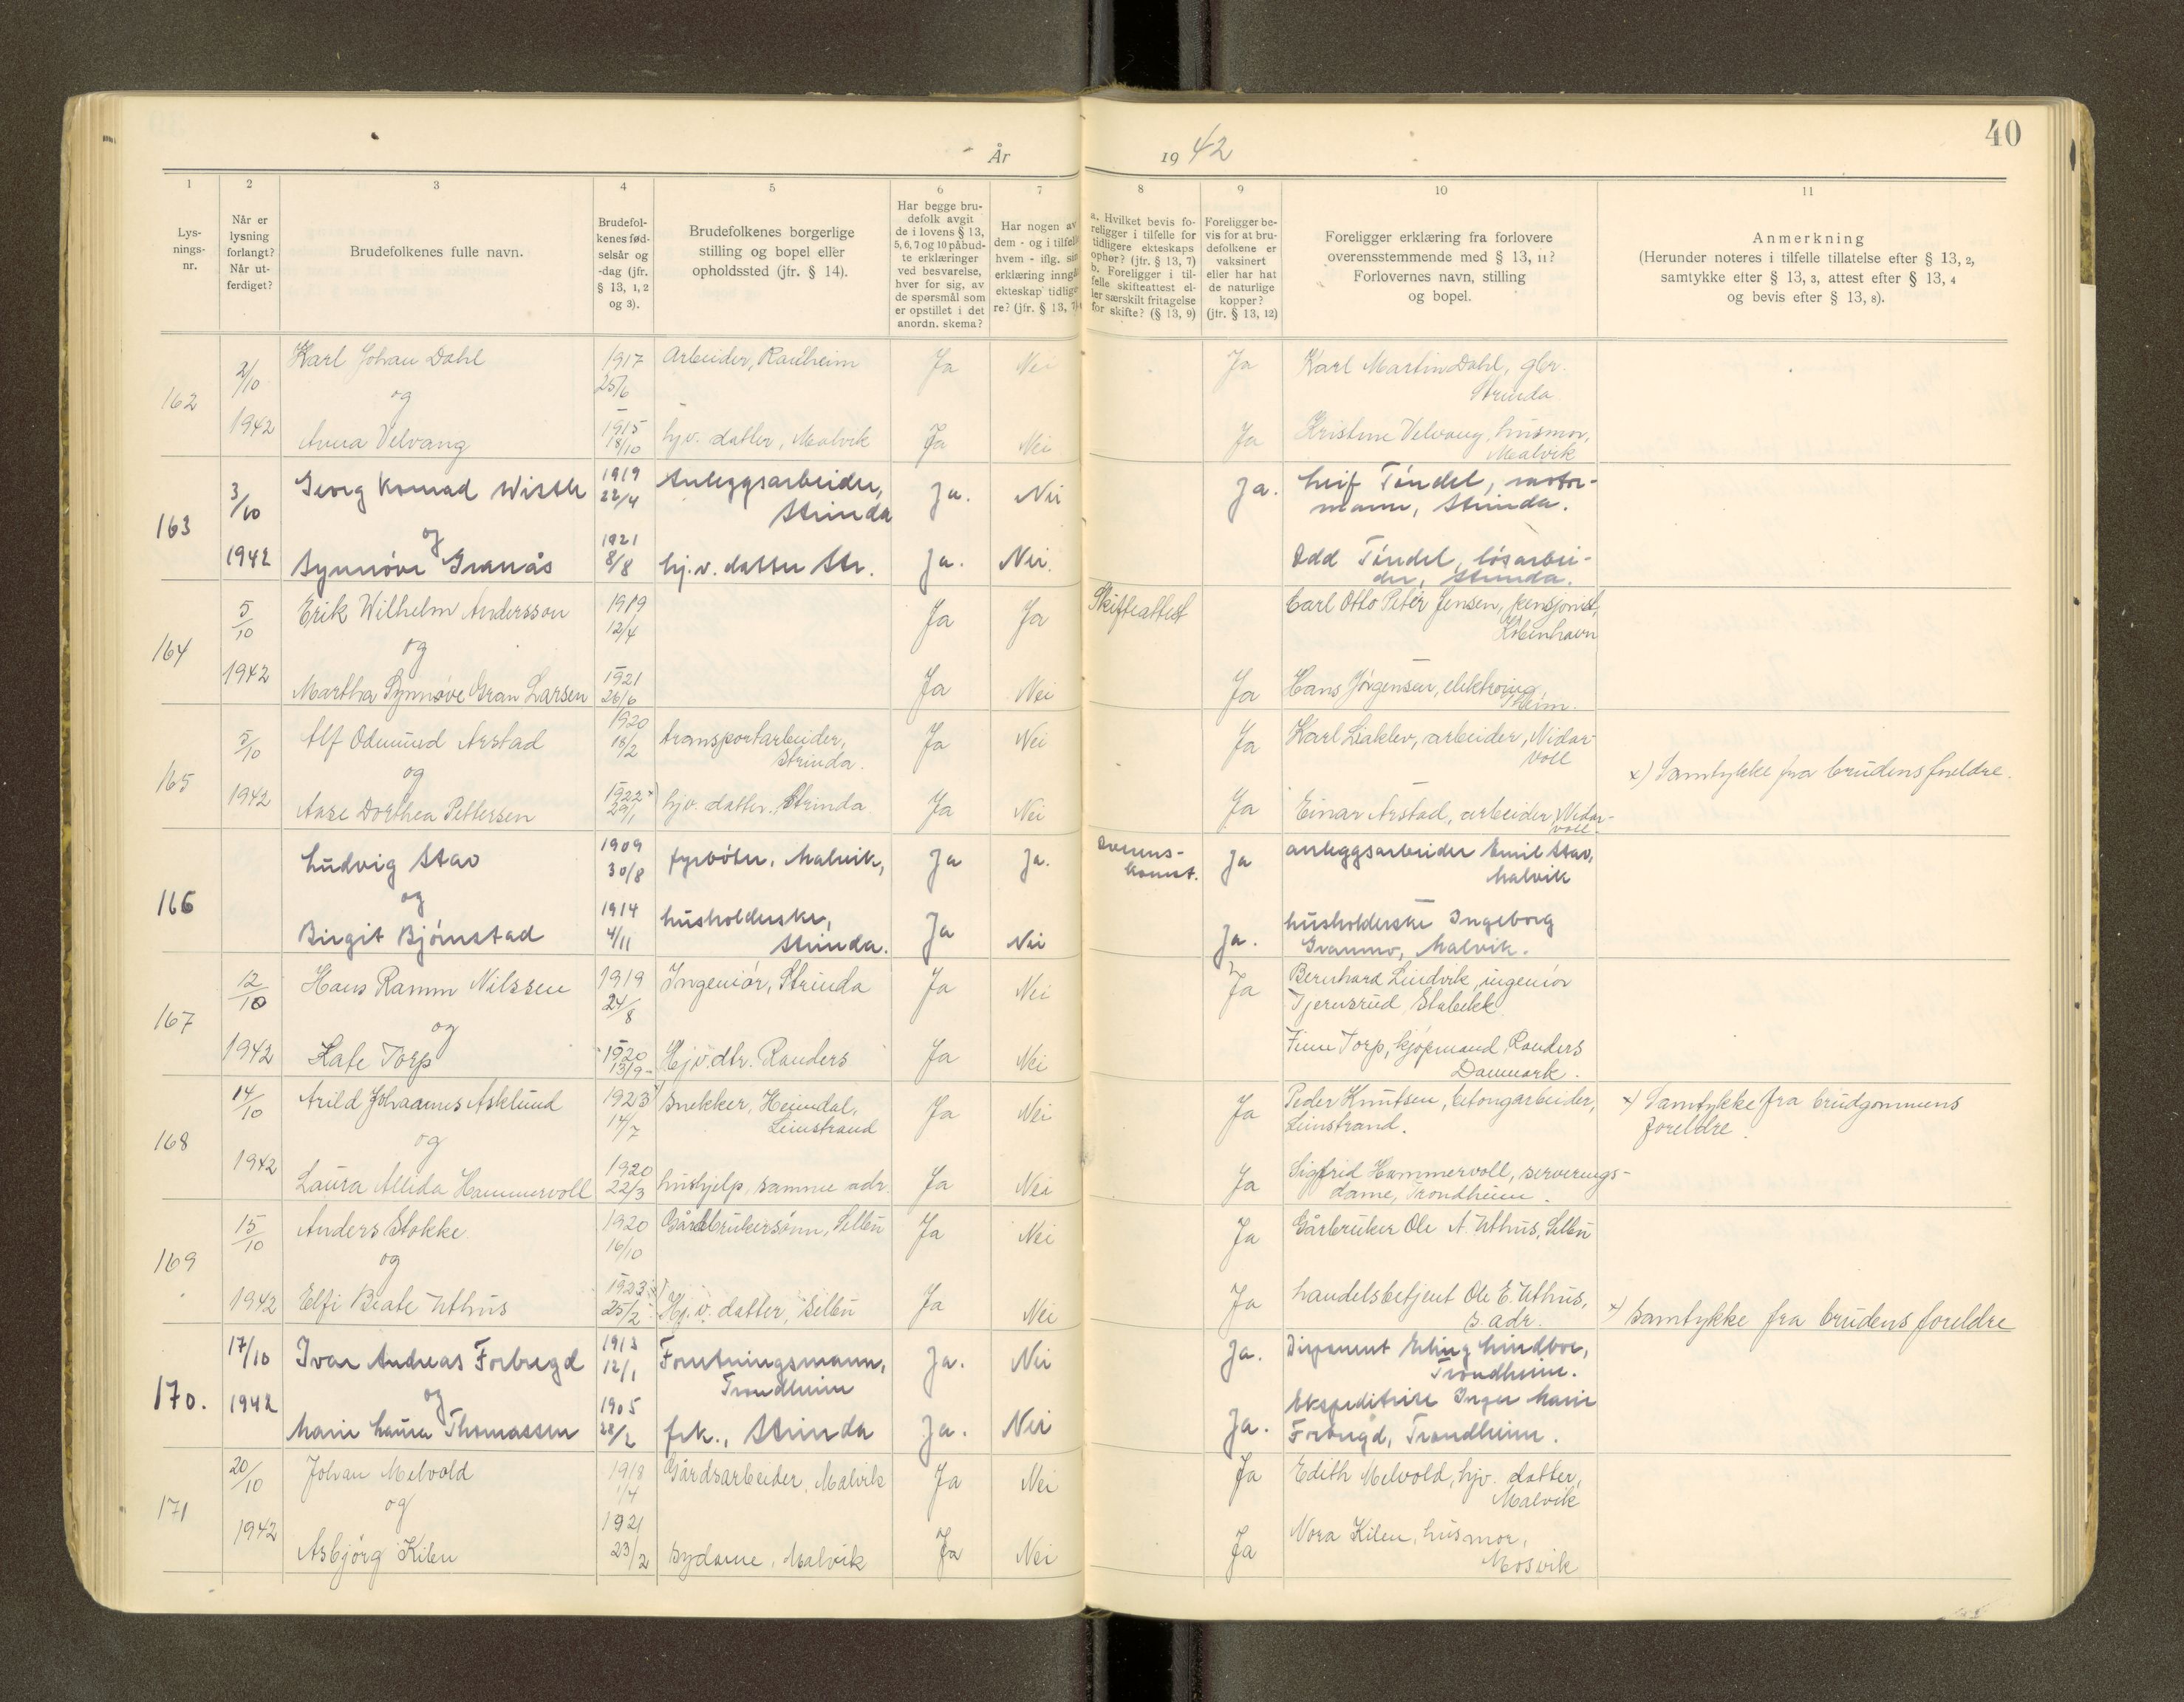 40
År 1942
1 2 3 4 5 6 7 8 9 10 11
Lys-
nings-
nr.
Når er
lysning
forlangt?
Når ut-
ferdiget?
Brudefolkenes fulle navn.
Brudefol-
kenes fød-
selsår og
-dag (jfr.
§ 13, 1, 2
og 3).
Brudefolkenes borgerlige
stilling og bopel eller
opholdssted (jfr. § 14).
Har begge bru-
defolk avgit
de i lovens § 13,
5, 6, 7 og 10 påbud-
te erklæringer
ved besvarelse,
hver for sig, av
de spørsmål som
er opstillet i det
anordn. skema?
Har nogen av
dem - og i tilfelle
hvem - iflg. sin
erklæring inngå
ekteskap tidlige
re? (jfr. § 13, 7)
a. Hvilket bevis fo-
religger i tilfelle for
tidligere ekteskaps
ophør? (jfr. § 13, 7)
b. Foreligger i til-
felle skifteattest el-
ler særskilt fritagelse
for skifte? (§ 13, 9)
Foreligger be-
vis for at bru-
defolkene er
vaksinert
eller har hat
de naturlige
kopper?
(jfr. § 13, 12)
Foreligger erklæring fra forlovere
overensstemmende med § 13, 11?
Forlovernes navn, stilling
og bopel.
Anmerkning
(Herunder noteres i tilfelle tillatelse efter § 13, 2,
samtykke efter § 13, 3, attest efter § 13, 4
og bevis efter § 13, 8).
162 2/10 Karl Johan Dahl 1917 25/6 Arbeider, Ranheim Ja Nei Ja Karl Martin Dahl, gbr.
Strinda
og
1942 Anna Velvang 1915 18/10 hjv. datter, Malvik Ja Nei Ja Kristine Velvang, husmor,
Malvik
163 3/10 Georg Konrad Wisth 1919 22/4 Anleggsarbeider,
Strinda Ja. Nei Ja. Leif Tøndel, motor-
mann, Strinda.
og
1942 Synnøve Granås 1921 8/8 hj.v. datter Str. Ja. Nei. Odd Tøndel, løsarbei-
der, Strinda.
164 5/10 Erik Wilhelm Andersson 1919 12/4 Ja Ja Skifteattest Carl Otto Peter Jensen, pensjonist,
København
og
1942 Martha Synnøve Gran Larsen 1921 26/6 Ja Nei Ja Hans Jørgensen, elektroing.,
Tr.heim.
165 5/10 Alf Odmund Arstad 1920 18/2 transportarbeider,
Strinda. Ja Nei Ja Karl Liaklev, arbeider, Nidar-
voll
og
x) Samtykke fra brudens foreldre.
1942 Aase Dorthea Pettersen 1922 x) 29/1 hjv. datter. Strinda Ja Nei Ja Einar Arstad, arbeider, Nidar-
voll.
166 Ludvig Stav 1909 30/8 fyrbøter, Malvik, Ja Ja. Overens-
komst. Ja anleggsarbeider Emil Stav,
Malvik
og
Birgit Bjørnstad 1914 4/11 husholderske,
Strinda. Ja Nei Ja. husholderske Ingeborg
Granmo, Malvik.
167 12/10 Hans Ramm Nilssen 1919 24/8 Ingeniør, Strinda Ja Nei Ja Bernhard Lindvik, ingeniør
Tjernsrud, Stabekk
og
1942 Kate Torp 1920 13/9 Hjv. dtr. Randers Ja Nei Finn Torp, kjøpmand, Randers
Danmark.
168 14/10 Arild Johannes Asklund 1923 x) 14/7 snekker, Heimdal,
Leinstrand Ja Nei Ja Peder Knutsen, betongarbeider,
Leinstrand.
x) Samtykke fra brudgommens
foreldre.
og
1942 Laura Alida Hammervoll 1920 22/3 hushjelp, samme adr. Ja Nei Ja Sigfrid Hammervoll, serverings-
dame, Trondheim.
169 15/10 Anders Stokke 1920 16/10 Gårdbrukersønn, Selbu Ja Nei Ja Gårbruker Ole A. Uthus, Selbu
og
1942 Elfi Beate Uthus 1923 x) 25/2 Hj. v. datter, Selbu Ja Nei Ja handelsbetjent Ole E. Uthus,
s. adr.
x) samtykke fra brudens foreldre
170. 17/10 Ivar Andreas Forbregd 1913 12/1 Forretningsmann,
Trondheim Ja. Nei Ja. Disponent Erling Lindboe,
Trondheim.
og
1942 Marie Laura Thomassen 1905 28/2 frk., Strinda Ja. Nei Ja. Ekspeditrise Inger Marie
Forbregd, Trondheim.
171 20/10 Johan Melvold 1918 1/4 Gårdsarbeider, Malvik Ja Nei Ja Edith Melvold, hjv. datter,
Malvik
og
1942 Asbjørg Kilen 1921 23/2 sydame, Malvik Ja Nei Ja Nora Kilen, husmor,
Mosvik